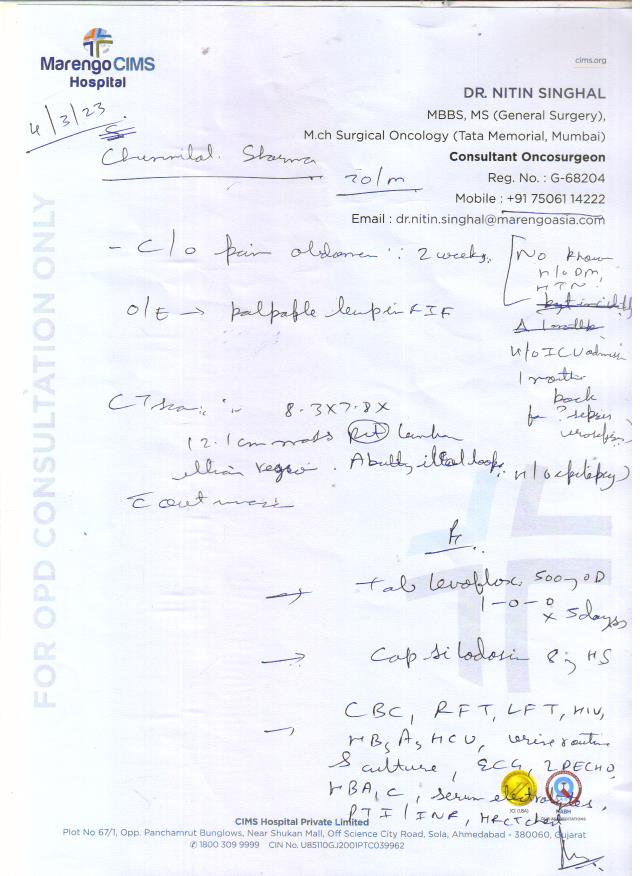 Marengo CIMS
Hospital
cims.org
4/3/23
DR. NITIN SINGHAL
MBBS, MS (General Surgery),
M.ch Surgical Oncology (Tata Memorial, Mumbai)
Consultant Oncosurgeon
Reg. No. : G-68204
Mobile : +91 75061 14222
Email : dr.nitin.singhal@marengoasia.com
Chunnilal. Sharma
70/m
FOR OPD CONSULTATION ONLY
- C/o pain abdomen :: 2 weeks,
No known
H/o DM,
HTN
O/E → palpable lump in RIF
H/o ICU admission
1 month
back
for ? sepsis
urosepsis
H/o epilepsy)
CT scan :- 8.3x7.8x
12.1cm mass Rt lumbar
iliac region. Abutting ileal loops.
Rx
→ Tab levoflox. 500mg OD
1-0-0
x 5 days,
→ Cap silodosin 8mg HS
→ CBC, RFT, LFT, HIV,
HBsAg HCV, urine routine
& culture, ECG, 2DECHO,
HBA1C, serum electrolytes,
PT I / INR, HRCT chest
JCI (USA)
NABH
OUR ACCREDITATIONS
CIMS Hospital Private Limited
Plot No 67/1, Opp. Panchamrut Bunglows, Near Shukan Mall, Off Science City Road, Sola, Ahmedabad - 380060, Gujarat
✆ 1800 309 9999 CIN No. U85110GJ2001PTC039962